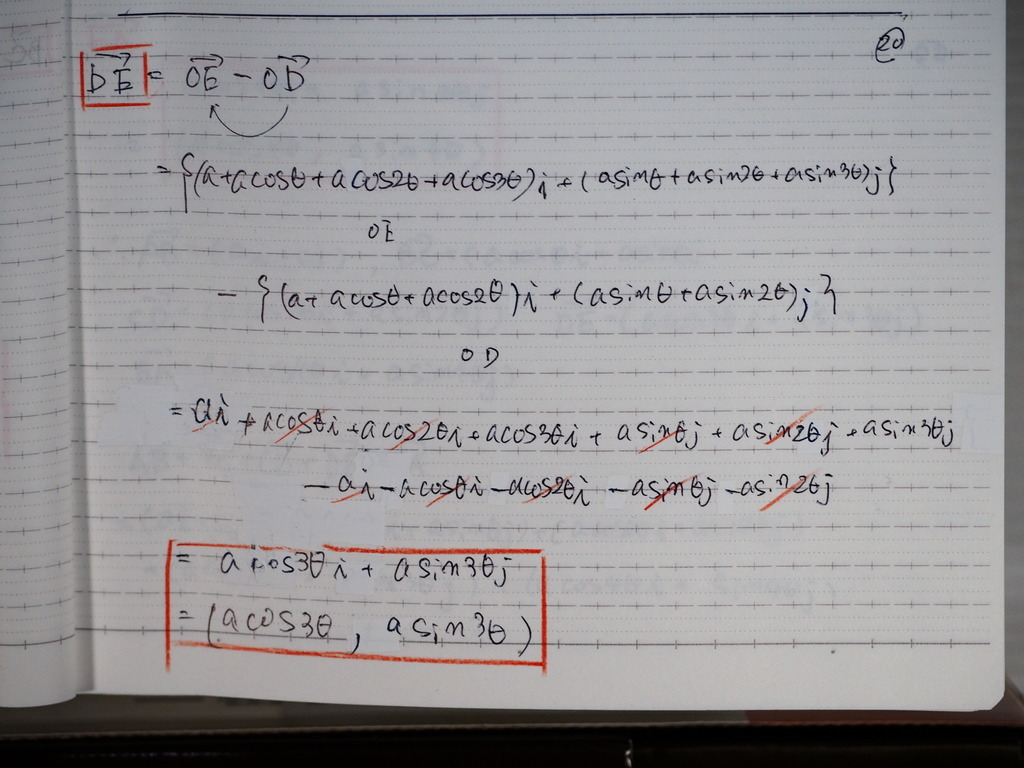 20
DE = OE - OD
= {(a+acosθ+acos2θ+acos3θ)i + (asinθ+asin2θ+asin3θ)j}
OE
- {(a+acosθ+acos2θ)i + (asinθ+asin2θ)j}
OD
= ai + acosθi + acos2θi + acos3θi + asinθj + asin2θj + asin3θj
- ai - acosθi - acos2θi - asinθj - asin2θj
= acos3θi + asin3θj
= (acos3θ, asin3θ)